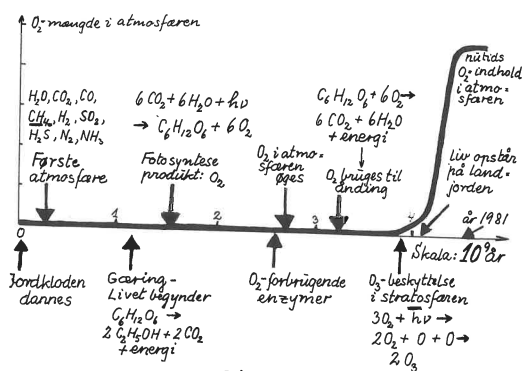 O₂-mængde i atmosfæren
H₂O, CO₂, CO,
CH₄, H₂, SO₂,
H₂S, N₂, NH₃
Første
atmosfære
6 CO₂ + 6 H₂O + hν
→ C₆H₁₂O₆ + 6 O₂
Fotosyntese
produkt: O₂
O₂ i atmo-
sfæren
øges
C₆H₁₂O₆ + 6 O₂ →
6 CO₂ + 6 H₂O
+ energi
O₂ bruges til
ånding
nutids
O₂-indhold
i atmo-
sfæren
liv opstår
på land-
jorden
år 1981
0 1 2 3 4
Skala: 10⁹ år
Jordkloden
dannes
Gæring-
Livet begynder
C₆H₁₂O₆ →
2 C₂H₅OH + 2 CO₂
+ energi
O₂-forbrugende
enzymer
O₃-beskyttelse
i stratosfæren
3O₂ + hν →
2O₂ + O + O →
2 O₃